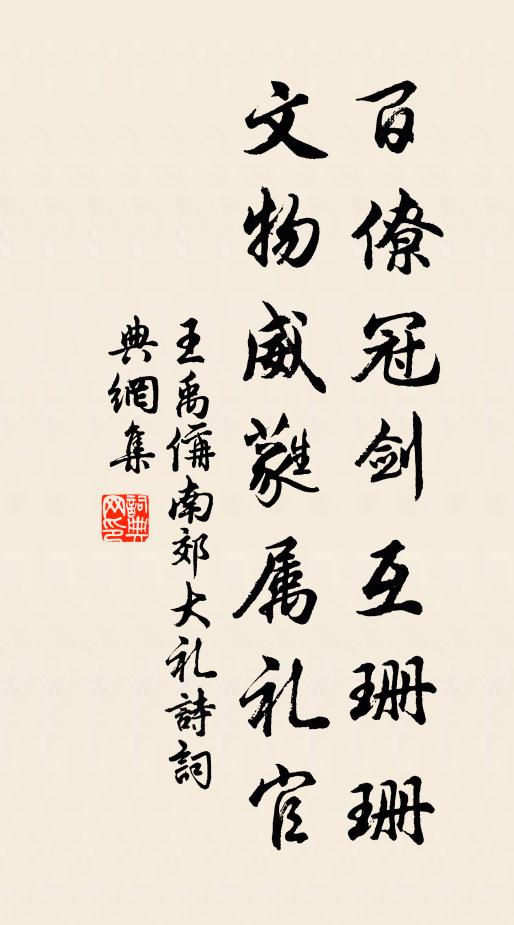 百僚冠剑互珊珊
文物威蕤属礼官
王禹偁南郊大礼詩詞
典網集
詞典網印